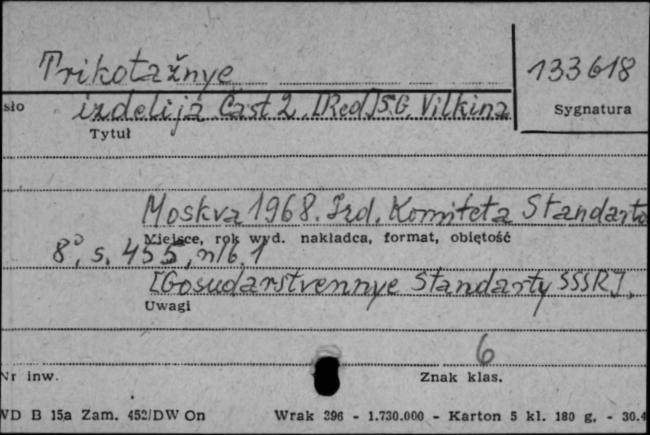 Trikotažnye
133618
sło izdelija Čast 2. [Red] S.G. Vilkina
Tytuł
Sygnatura
Moskva 1968. Izd. Komiteta Standarto
Miejsce, rok wyd. nakładca, format, obiętość
8°, s. 455, nlb, 1
[Gosudarstvennye Standarty SSSR].
Uwagi
6
Nr inw.
Znak klas.
WD B 15a Zam. 452/DW On Wrak 396 - 1.730.000 - Karton 5 kl. 180 g. - 30.4